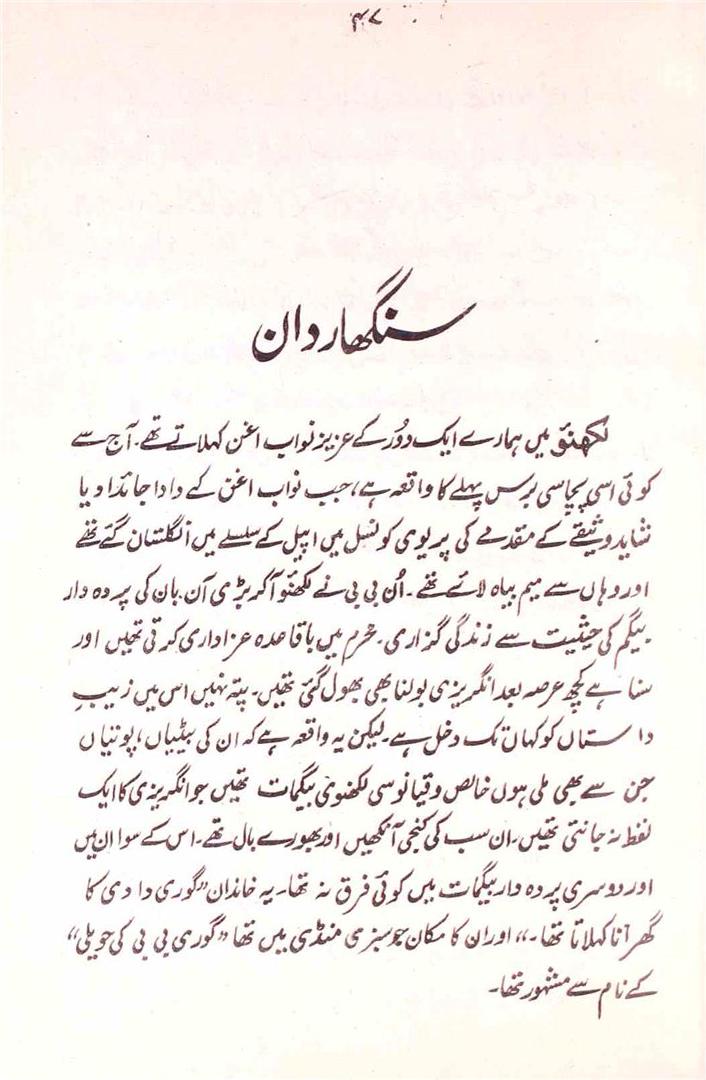 ۴۷
سنگھاردان
لکھنؤ میں ہمارے ایک دُور کے عزیز نواب اغن کہلاتے تھے۔ آج سے
کوئی اسی پچاسی برس پہلے کا واقعہ ہے، جب نواب اغن کے دادا جائداد یا
شاید وثیقے کے مقدمے کی پریوی کونسل میں اپیل کے سلسلے میں انگلستان گئے تھے
اور وہاں سے میم بیاہ لائے تھے۔ اُن بی بی نے لکھنؤ آکر بڑی آن بان کی پردہ دار
بیگم کی حیثیت سے زندگی گزاری۔ محرم میں باقاعدہ عزاداری کرتی تھیں اور
سنا ہے کچھ عرصہ بعد انگریزی بولنا بھی بھول گئی تھیں۔ پتہ نہیں اس میں زیبِ
داستاں کو کہاں تک دخل ہے۔ لیکن یہ واقعہ ہے کہ ان کی بیٹیاں، پوتیاں
جن سے بھی ملی ہوں خالص دقیانوسی لکھنوی بیگمات تھیں جو انگریزی کا ایک
لفظ نہ جانتی تھیں۔ ان سب کی کنجی آنکھیں اور بھورے بال تھے۔ اس کے سوا ان میں
اور دوسری پردہ دار بیگمات میں کوئی فرق نہ تھا۔ یہ خاندان ”گوری دادی کا
گھرانا کہلاتا تھا۔“ اور ان کا مکان جو سبزی منڈی میں تھا ”گوری بی بی کی حویلی“
کے نام سے مشہور تھا۔